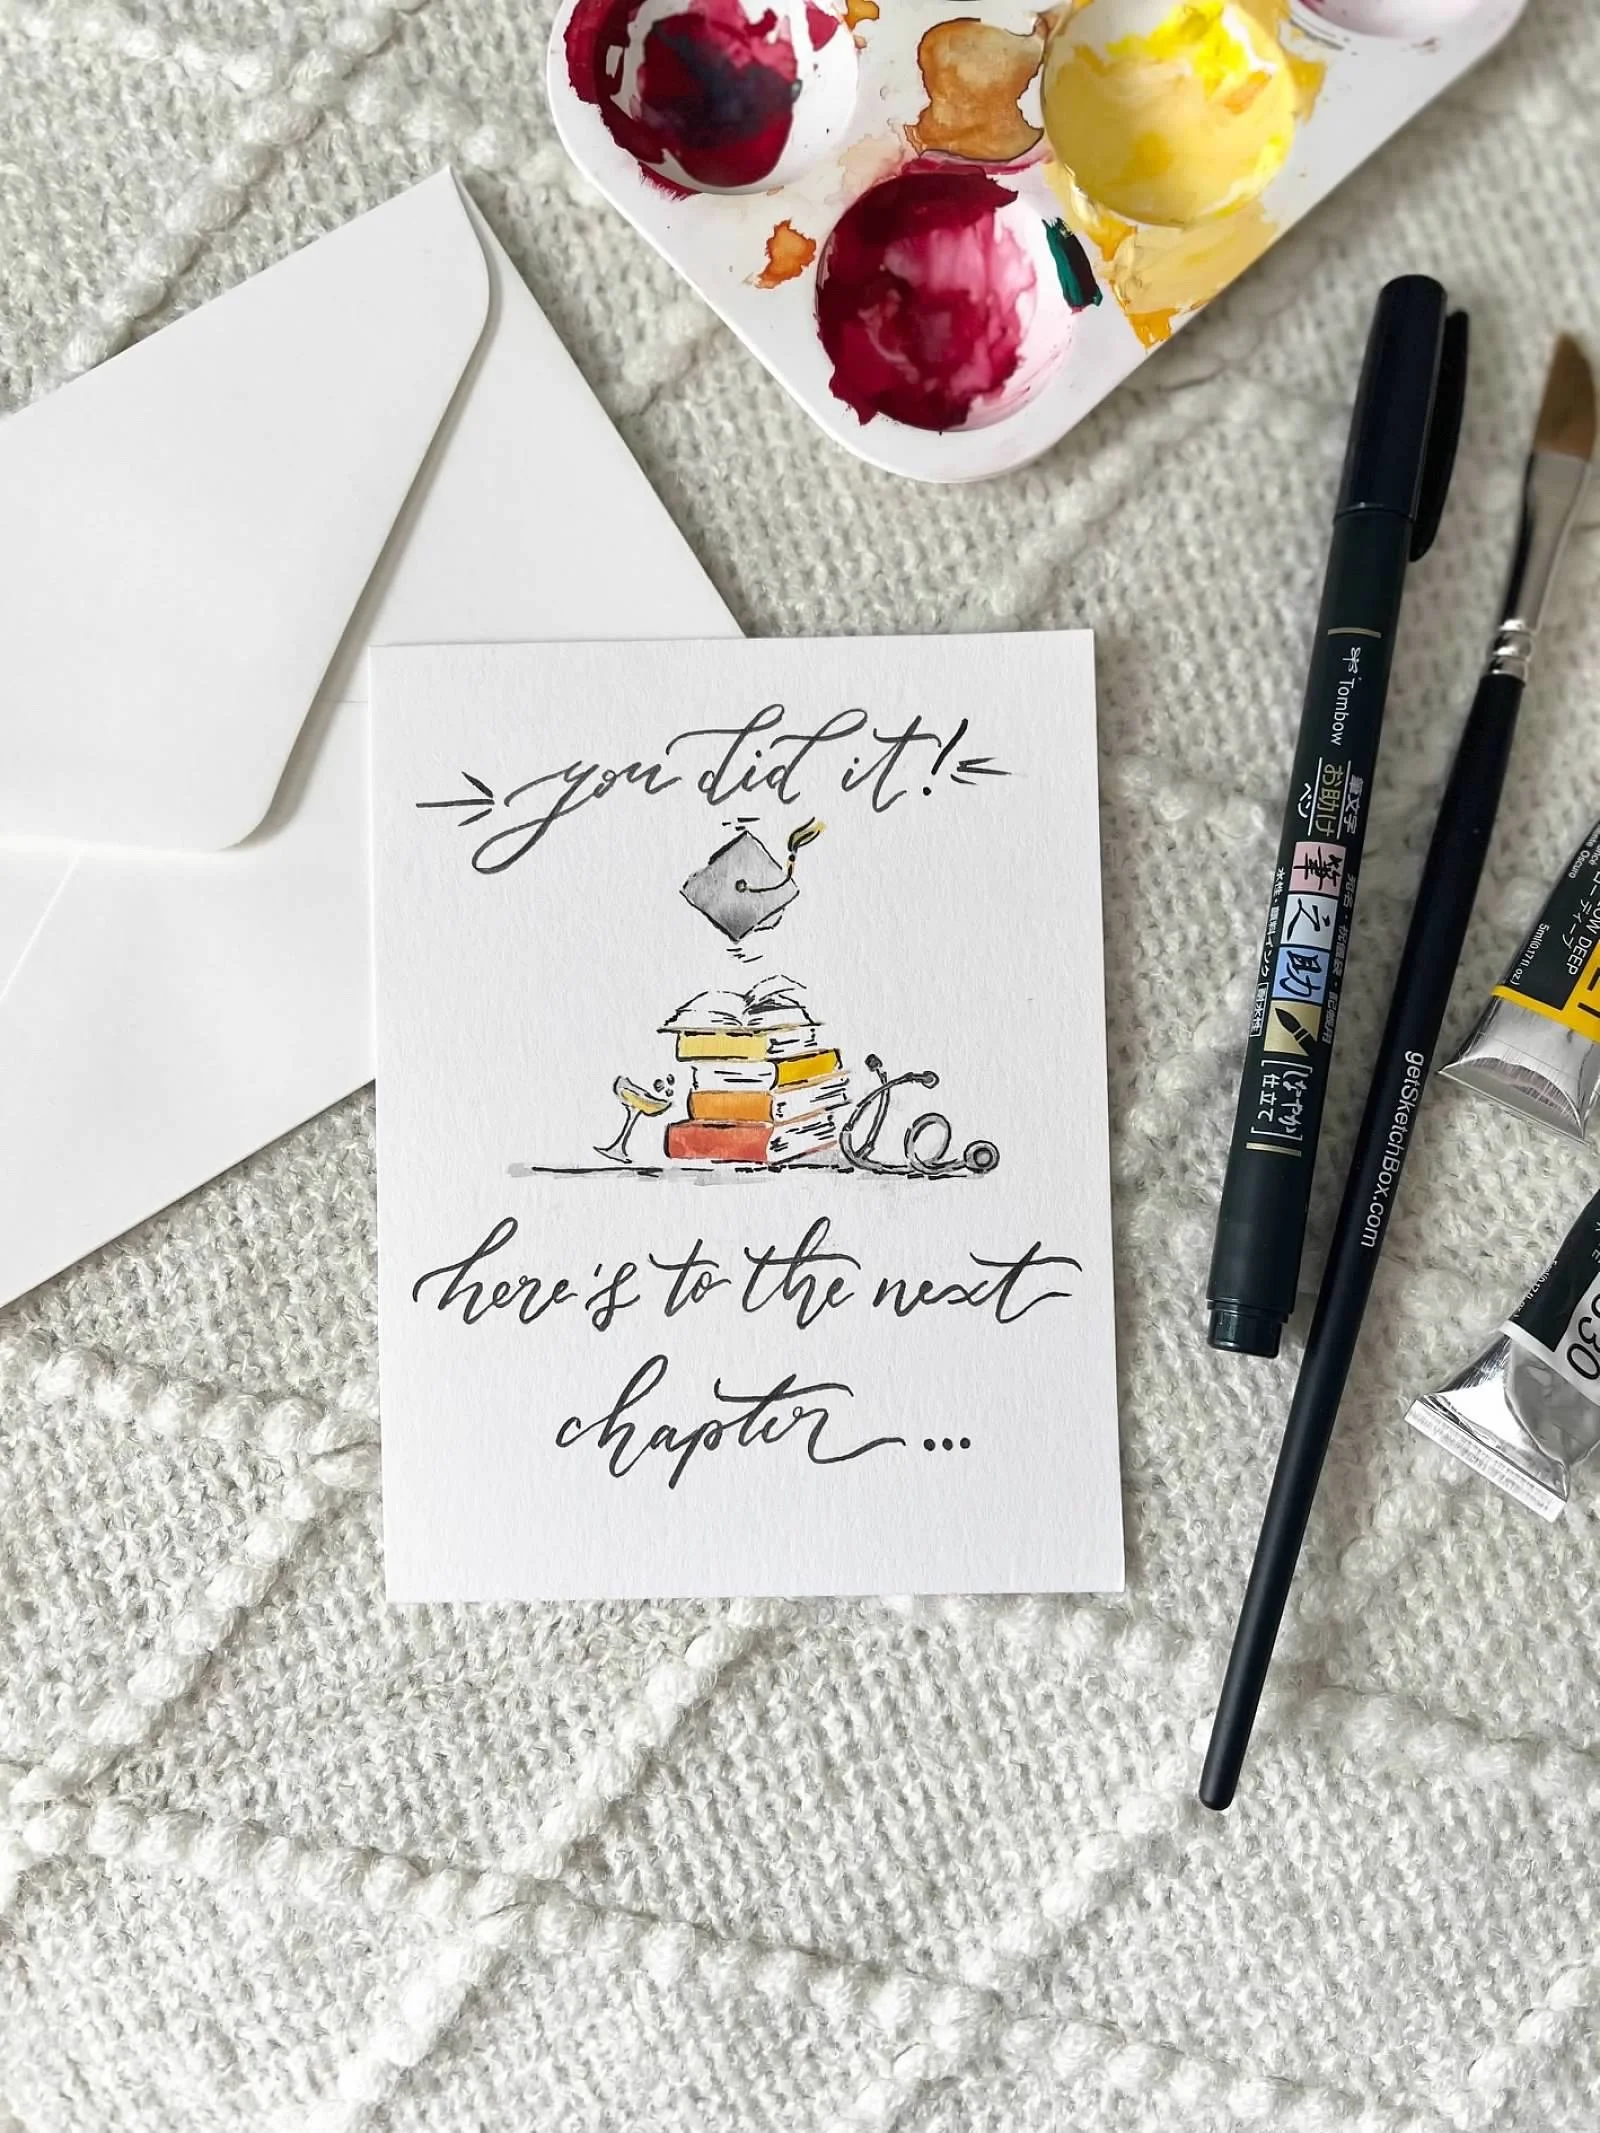 you did it!
here's to the next
chapter...
Tombow
筆文字
お助け
ペン
筆之助
水性・顔料インク
しなやか
仕立て
getSketchBox.com
OW DEEP
5ml(0.17 fl.oz.)